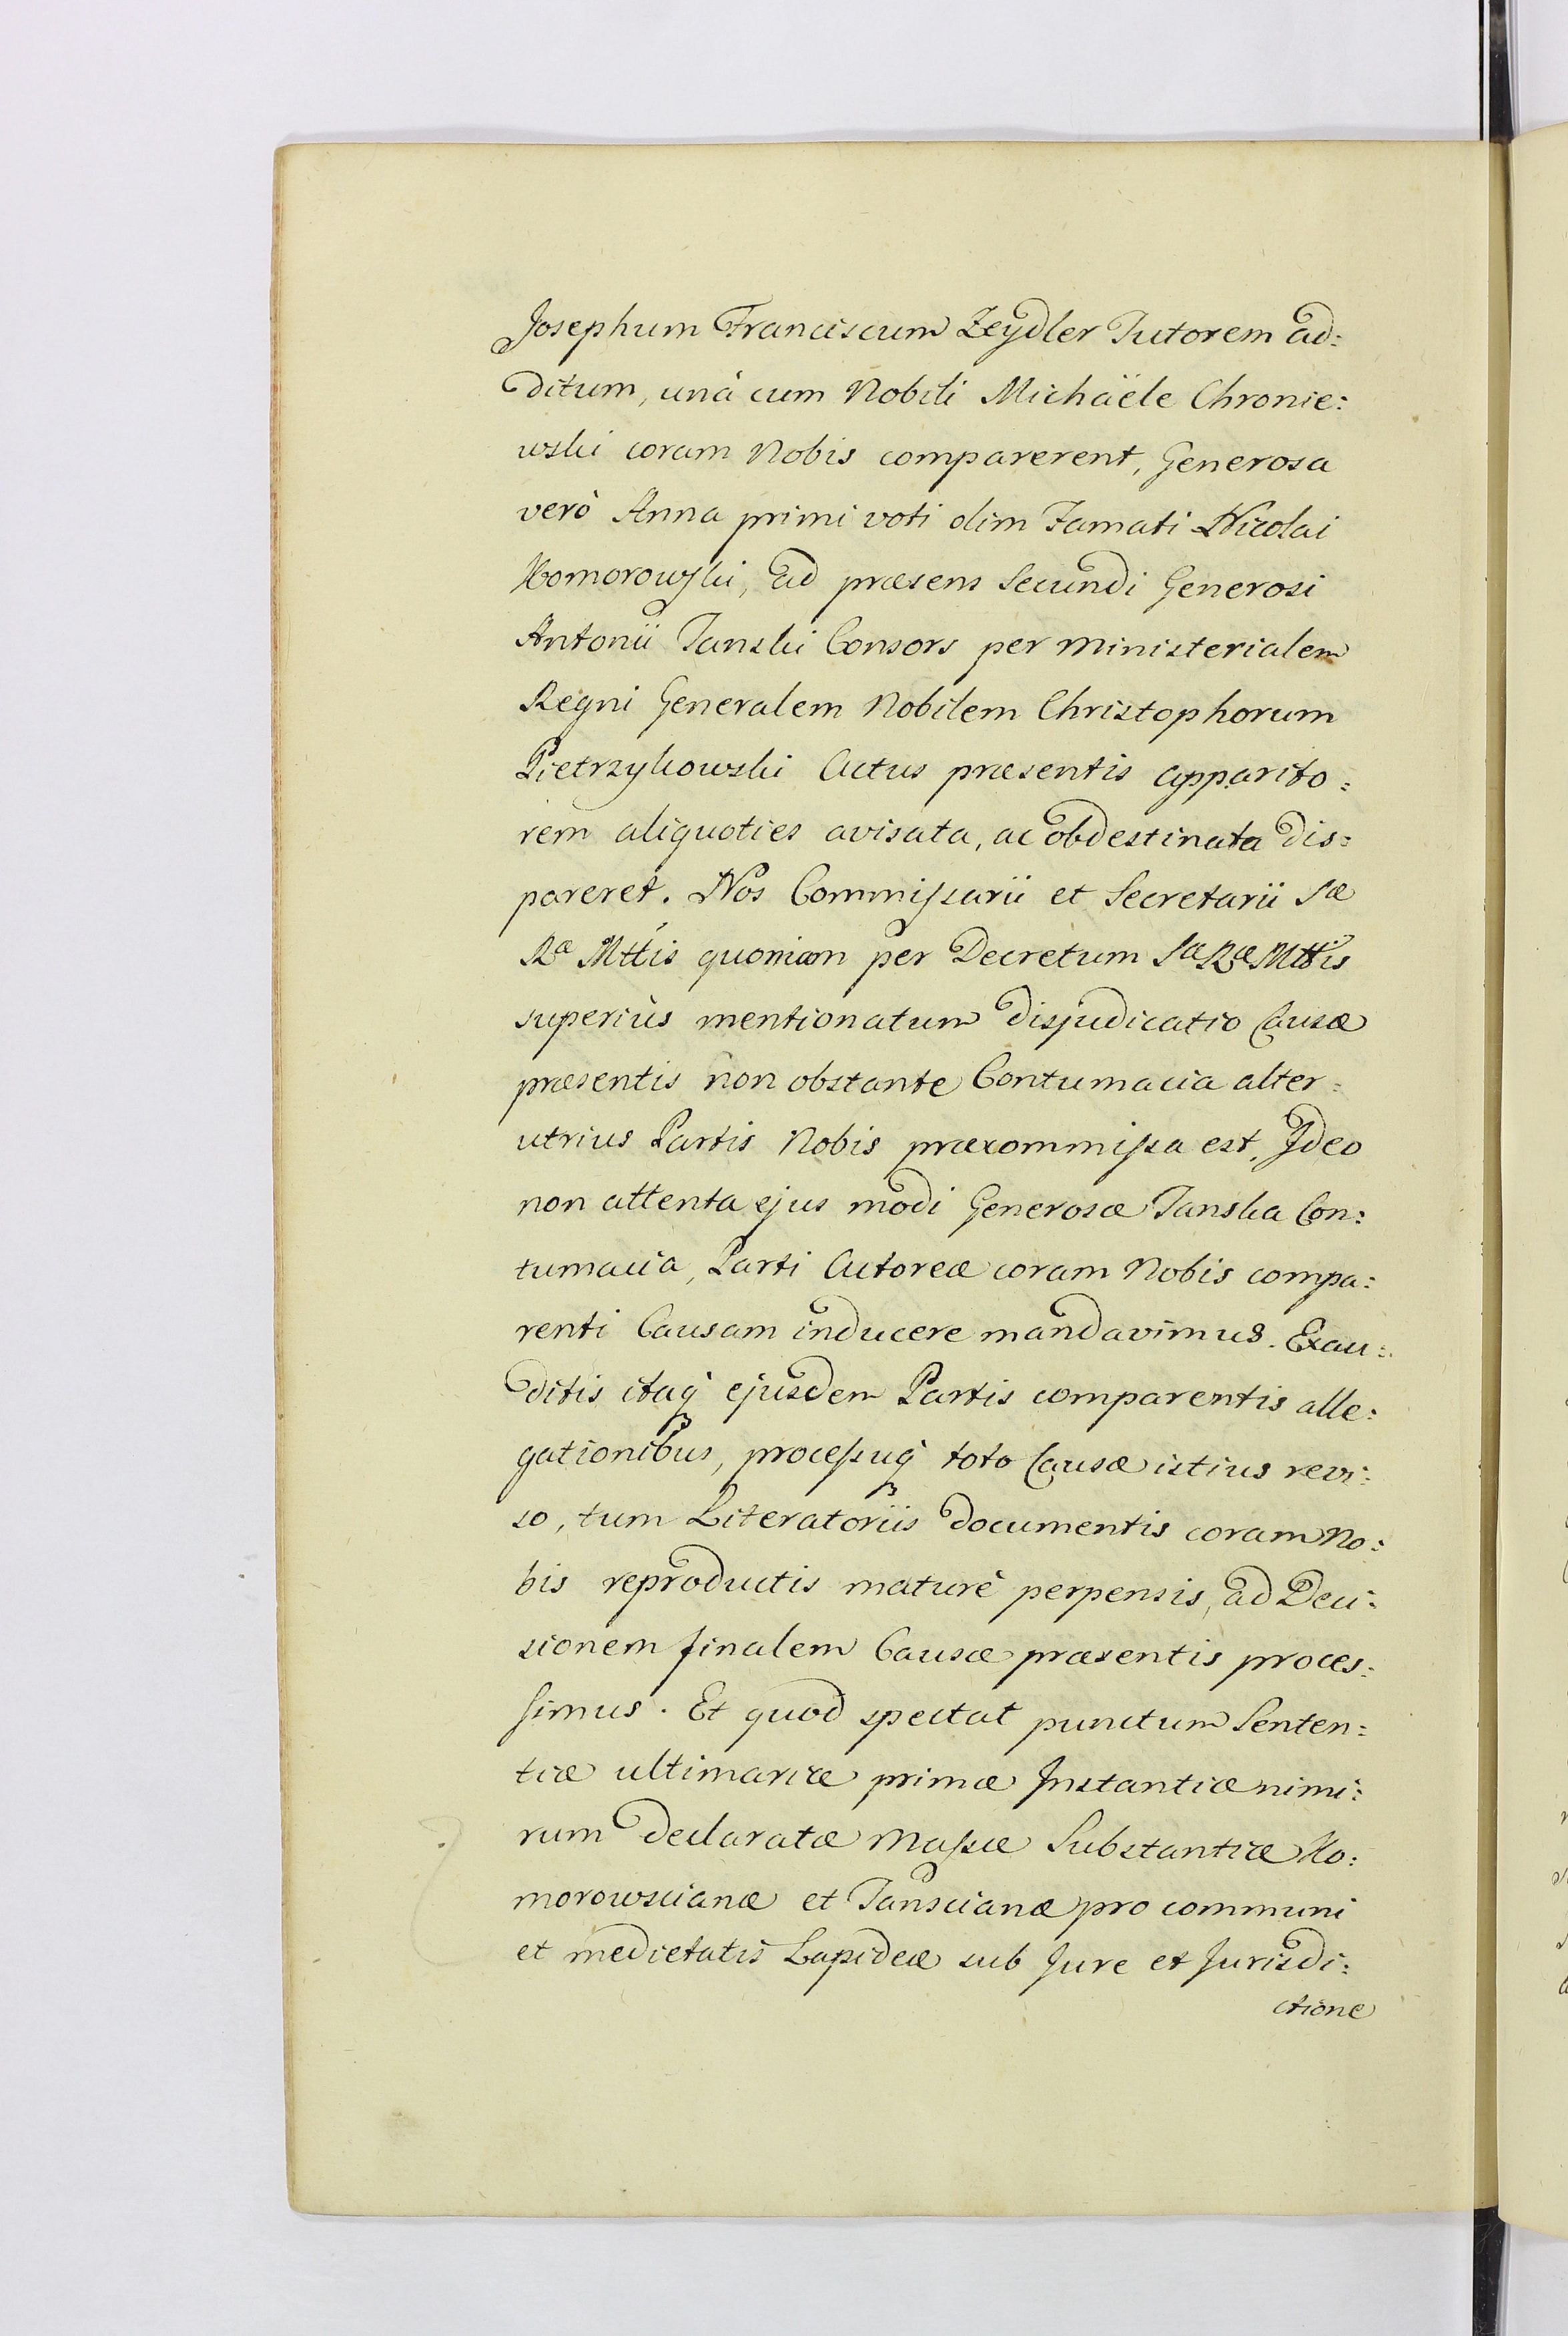 Josephum Franciscum Zeydler Tutorem ad:
ditum, unà cum Nobili Michaële Chronie:
wski coram Nobis comparerent, Generosa
verò Anna primi voti olim Famati Nicolai
Komorowski, ad præsens Secundi Generosi
Antonii Janski Consors per Ministerialem
Regni Generalem Nobilem Christophorum
Pietrzykowski Actus præsentis apparito:
rem aliquoties avisata, ac obdestinata dis:
pareret. Nos Commissarii et Secretarii Sæ
Ræ Mttis quoniam per Decretum Sæ Ræ Mttis
superiùs mentionatum disjudicatio Causæ
præsentis non obstante Contumacia alter:
utrius Partis Nobis præcommissa est, Ideo
non attenta ejus modi Generosæ Janska Con:
tumacia, Parti Actoreæ coram Nobis compa:
renti Causam inducere mandavimus. Exau:
ditis itaq ejusdem Partis comparentis alle:
gationibus, processuq toto Causæ istius revi:
so, tum Literatoriis documentis coram No:
bis reproductis maturè perpensis, ad Deci:
sionem finalem Causæ præsentis proces:
simus. Et quod spectat punctum Senten:
tiæ ultimariæ primæ Instantiæ nimi:
rum declaratæ Massæ Substantiæ Ko:
morowscianæ et Janscianæ pro communi
et medietatis Lapideæ sub Jure et Jurisdi:
ctione